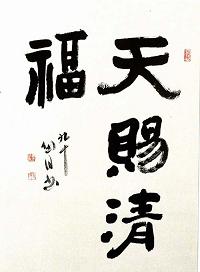 天賜清
福
九十